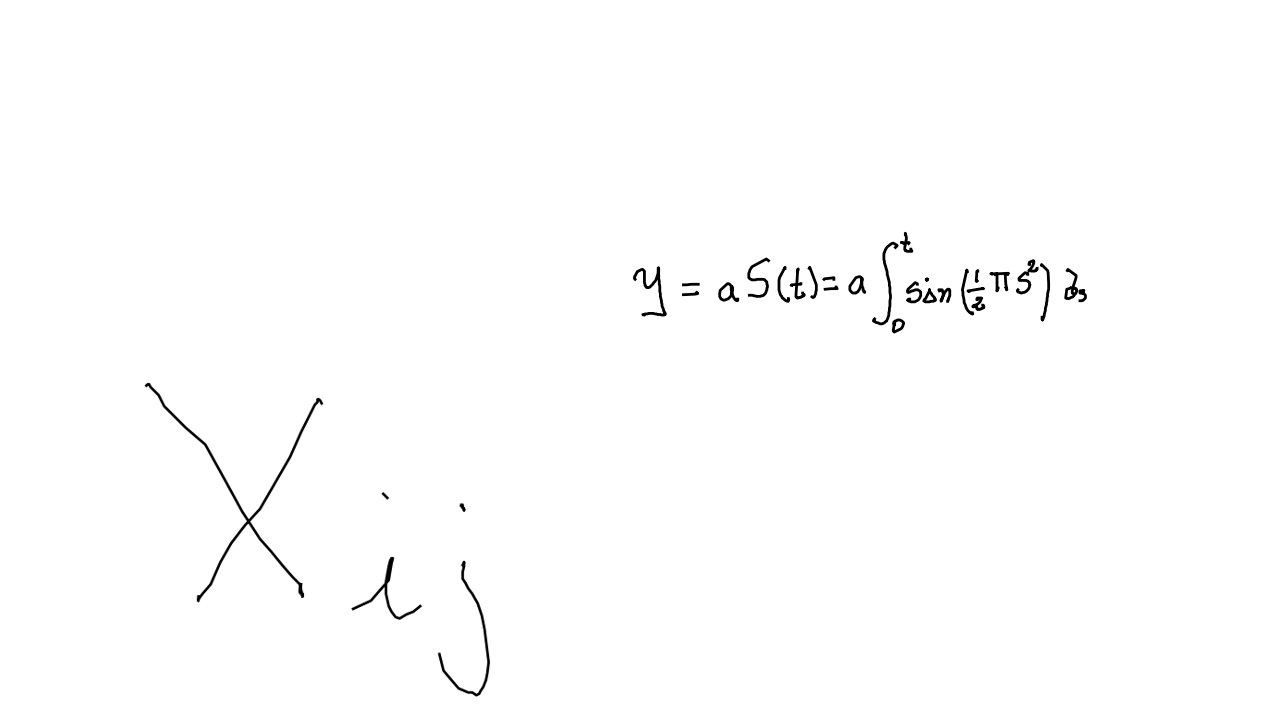 y = a S(t) = a ∫₀ᵗ sin(½ π s²) ds
X i j